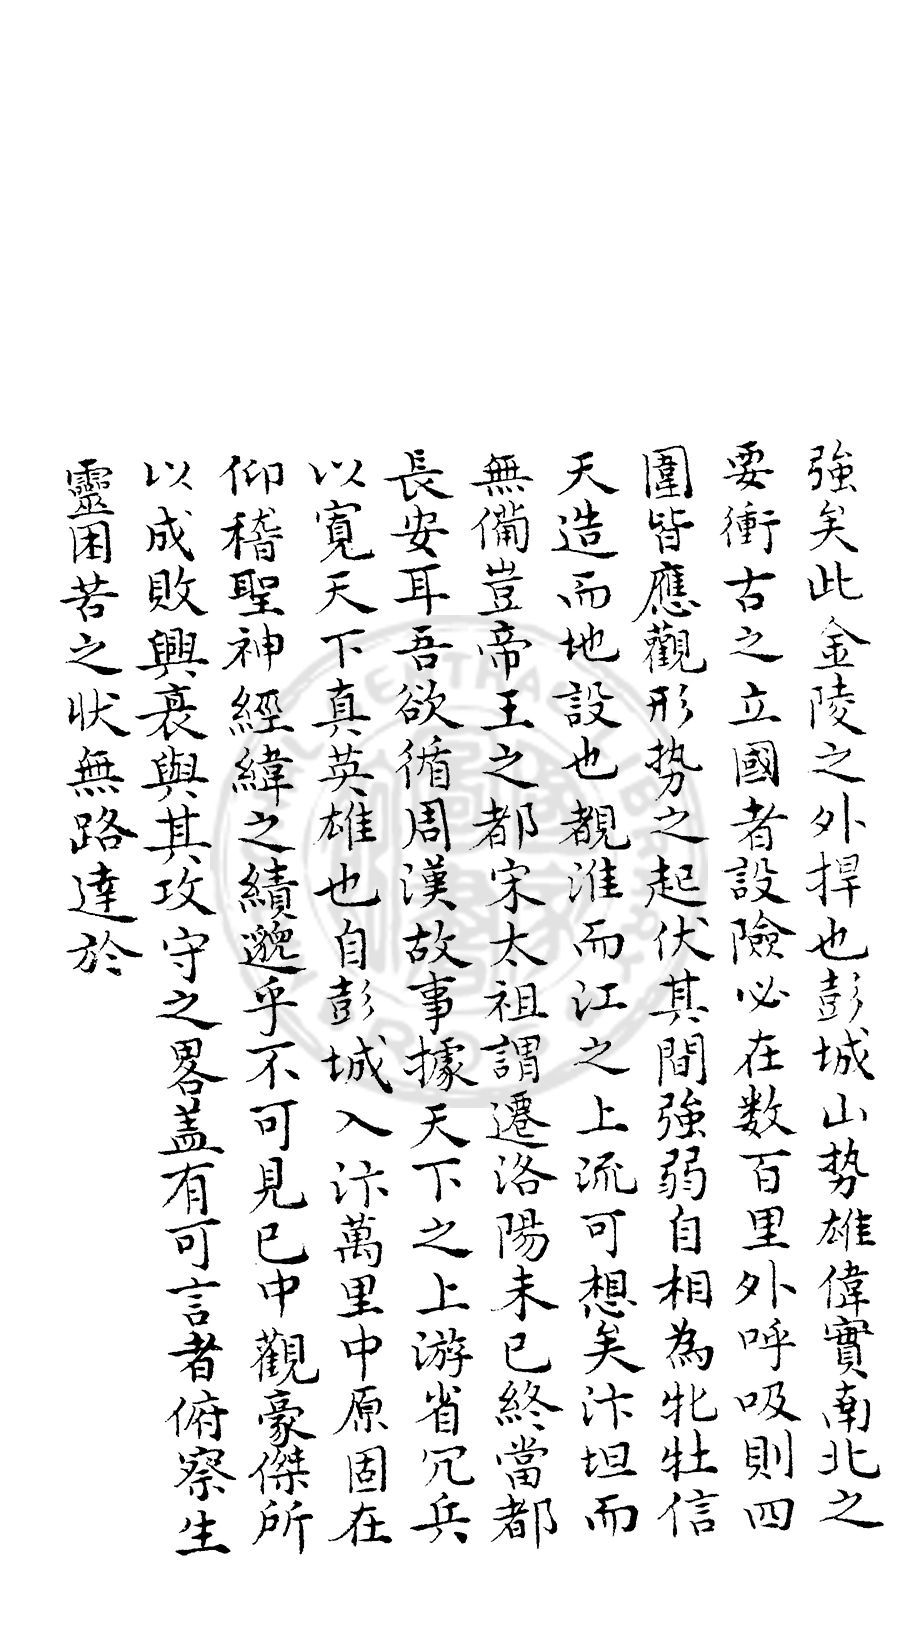 強矣此金陵之外捍也彭城山势雄偉實南北之
要衝古之立國者設險必在数百里外呼吸則四
圍皆應觀形势之起伏其間強弱自相為牝牡信
天造而地設也覩淮而江之上流可想矣汴坦而
無備豈帝王之都宋太祖謂遷洛陽未已終當都
長安耳吾欲循周漢故事據天下之上游省冗兵
以寬天下真英雄也自彭城入汴萬里中原固在
仰稽聖神經緯之績邈乎不可見已中觀豪傑所
以成敗興衰與其攻守之畧盖有可言者俯察生
靈困若之状無路達於